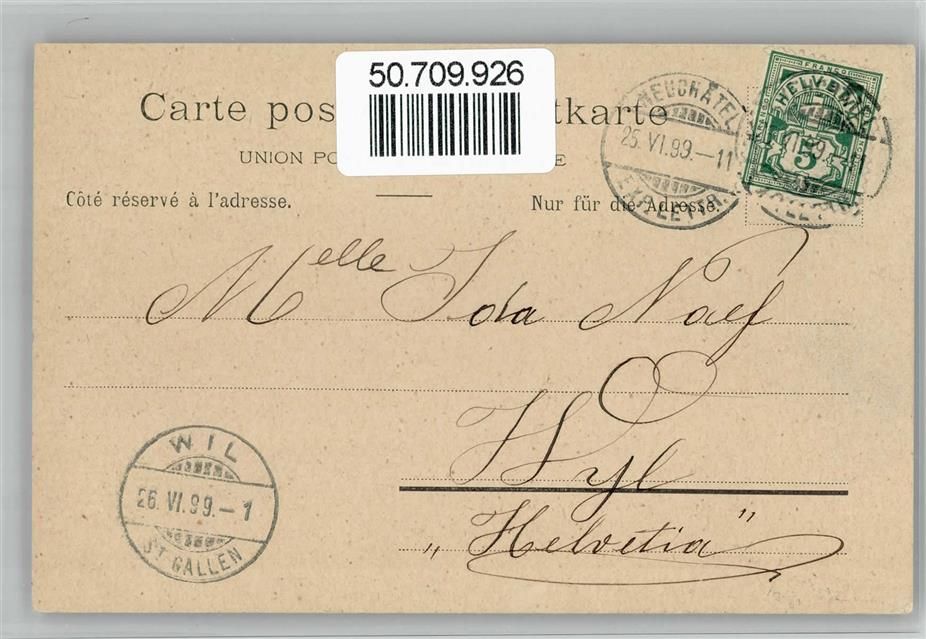 50.709.926
Carte pos tkarte
UNION PO E
Côté réservé à l'adresse. Nur für die Adresse.
NEUCHÂTEL
25.VI.99.–11
EXP. LETTR.
FRANCO
HELVETIA
5
Melle Ida Naef
Wyl
„Helvetia"
WIL
26.VI.99.–1
ST. GALLEN